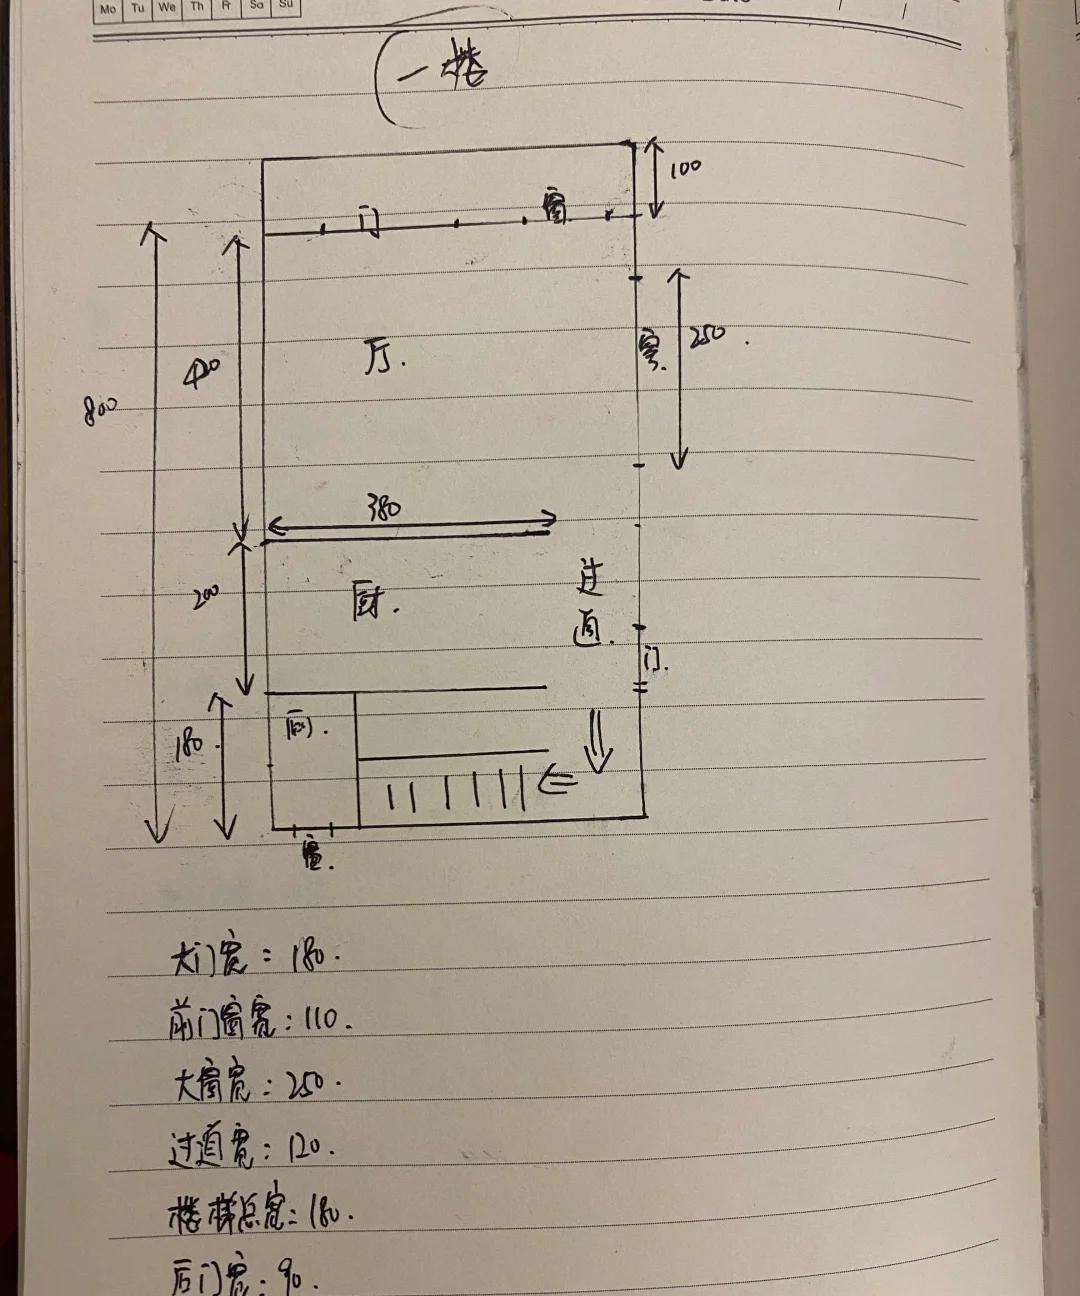 Mo Tu We Th Fr Sa Su
一楼
100
门 窗
250
窗.
厅.
420
800
380
过
道.
厨.
200
门.
厕.
180
窗.
大门宽：180.
前门窗宽：110.
大窗宽：250.
过道宽：120.
楼梯总宽：180.
后门宽：90.